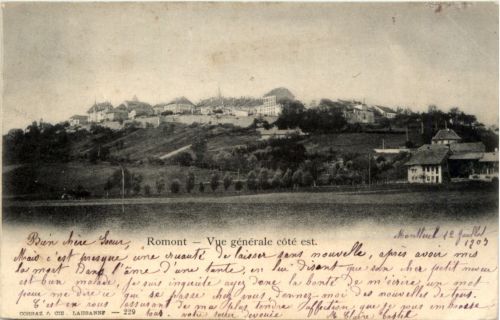 Bien chère Sœur,
Romont – Vue générale côté est.
Montreux 12 Juillet
1903
Mais c'est presque une cruauté de laisser sans nouvelle, après avoir mis
la mort dans l'âme d'une tante, en lui disant que son cher petit neveu
est bien malade, je suis inquiète ayez donc la bonté de m'écrire un mot
pour me dire ce qui se passe chez vous, donnez-moi des nouvelles de tous.
C'est en vous assurant de ma plus tendre affection, que je vous embrasse
tous. votre sœur dévouée
CORBAZ & CIE., LAUSANNE – 229